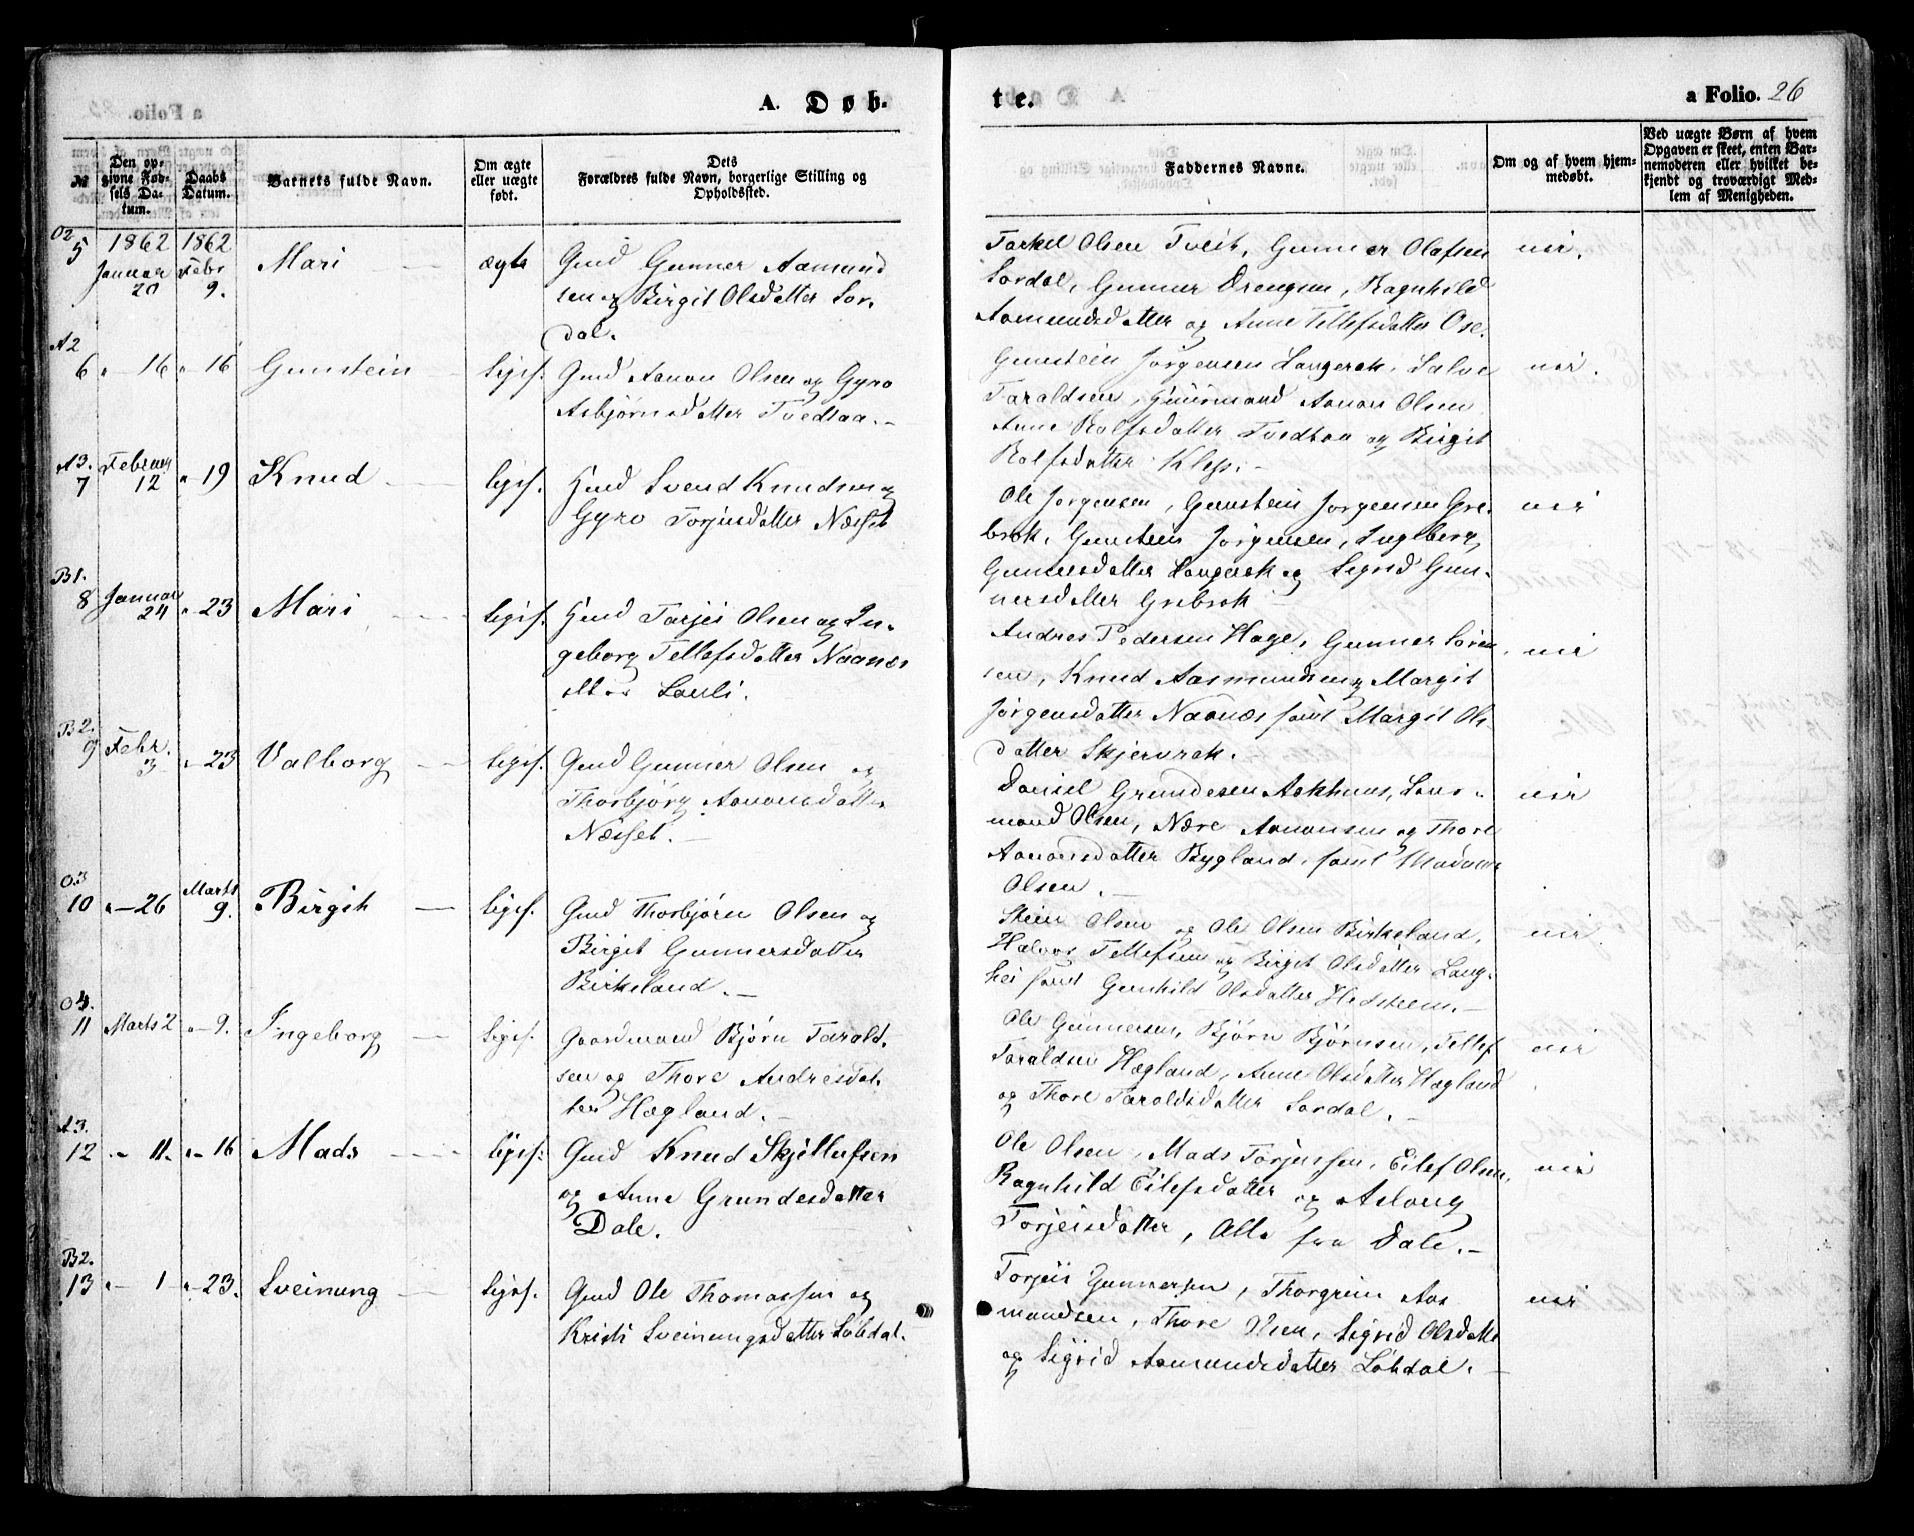 A. Døb-
te.
a Folio. 26
№
Den op-
givne Fød-
sels Da-
tum.
Daabs
Datum.
Barnets fulde Navn.
Om ægte
eller uægte
født.
Dets
Forældres fulde Navn, borgerlige Stilling og
Opholdssted.
Faddernes Navne.
Om og af hvem hjem-
medøbt.
Ved uægte Børn af hvem
Opgaven er skeet, enten Bar-
nemoderen eller hvilket be-
kjendt og troværdigt Med-
lem af Menigheden.
O2
5
1862
Januar
20
1862
Febr
9.
Mari
ægte
Gmd Gunner Aamund
sen og Birgit Olsdatter Sor-
dal.
Tarkel Olsen Tveit, Gunner Olafsen
Sordal, Gunner Drengsen, Ragnhild
Aamundsdatter og Anne Tellefsdatter Ose.
nei.
A2
6 „ — 16 „ 16 Gunstein — liges. Gmd Aanon Olsen og Gyro
Asbjørnsdatter Tvedtaa. —
Gunstein Jørgensen Langerak, Salve
Taraldsen, Aanon Olsen
Anne Rolfsdatter Tvedtaa og Birgit
Rolfsdatter Klep. —
nei.
A3.
7
Februar
12
„ 19 Knud — ligis. Gmd Svend Knudsen og
Gyro Torjusdatter Næsset
Ole Jørgensen, Gunstein Jørgensen Gre-
brok, Gunstein Jørgensen, Ingeborg
Gunnersdatter Langerak og Sigrid Gun-
nersdatter Grebrok
nei
B1.
8
Januar
24
„ 23 Mari — ligis. Gmd Tarjei Olsen og In-
geborg Tellefsdatter Naanæs
Lauli.
Andres Pedersen Hage, Gunner Søren
sen, Knud Aasmundsen og Margit
Jørgensdatter Naanæs samt Margit Ols
datter Skjervrak.
nei
B2.
9
Febr.
3
„ 23 Valborg — ligis. Gmd Gunner Olsen og
Thorbjørg Aanonsdatter
Næsset. —
Daniel Grundesen Aakhuus,
mand Olsen, Aanonsen og Thore
Aanonsdatter Bygland, samt Madame
Olsen. —
nei
O.3
10 „ — 26
Marts
9.
Birgit — ligis. Gmd Thorbjørn Olsen og
Birgit Gunnersdatter
Birkeland. —
Stein Olsen og Ole Olsen Birkeland,
Halvor Tellefsen og Birgit Olsdatter Lang-
hei samt Gunhild Olsdatter Hedstrem. —
nei
O4.
11 Marts 2 „ — 9. Ingeborg — ligis. Gaardmand Bjørn Tarald-
sen og Thore Andresdat-
ter Hægland. —
Ole Gunnersen, Bjørn Bjørnsen, Tellef
Taraldsen Hægland, Anne Olsdatter Hægland
og Thore Taraldsdatter Sordal. —
nei
A3.
12 „ — 11. „ — 16 Mads — ligis. Gmd Knud Skjellufsen
og Anne Grundesdatter
Dale.
Ole Olsen, Mads Torjussen, Eilef Olsen,
Ragnhild Eilefsdatter og Aslaug
Torjeisdatter, Alle fra Dale. —
nei
B2.
13 „ — 1 „ — 23. Sveinung — ligis. Gmd Ole Thomassen og
Kristi Sveinungsdatter Lobdal.
Torjeis Gunnersen, Thorgrim Aas
mundsen, Thore Olsen, Sigrid Olsdatter
og Sigrid Aamundsdatter Lobdal. —
nei